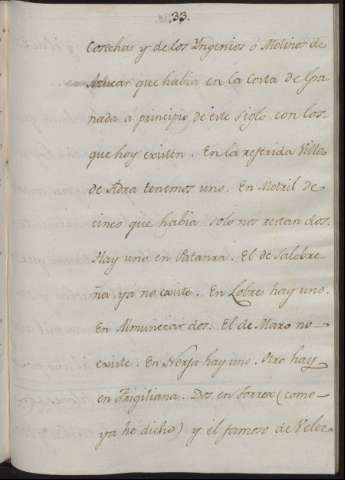 33.
cosechas y de los Yngenios ó Molinos de
Azucar que habia en la Costa de Gra
nada a principio de este siglo con los
que hoy existen. En la referida Villa
de Adra tenemos uno. En Motril de
cinco que habia solo nos restan dos.
Hay uno en Pataura. El de Salobre-
ña ya no existe. En Lobres hay uno.
En Almuñecar dos. El de Maro no
existe. En Nerja hay uno. Otro hay
en Frigiliana. Dos en Torrox (como
ya he dicho) y el famoso de Velez